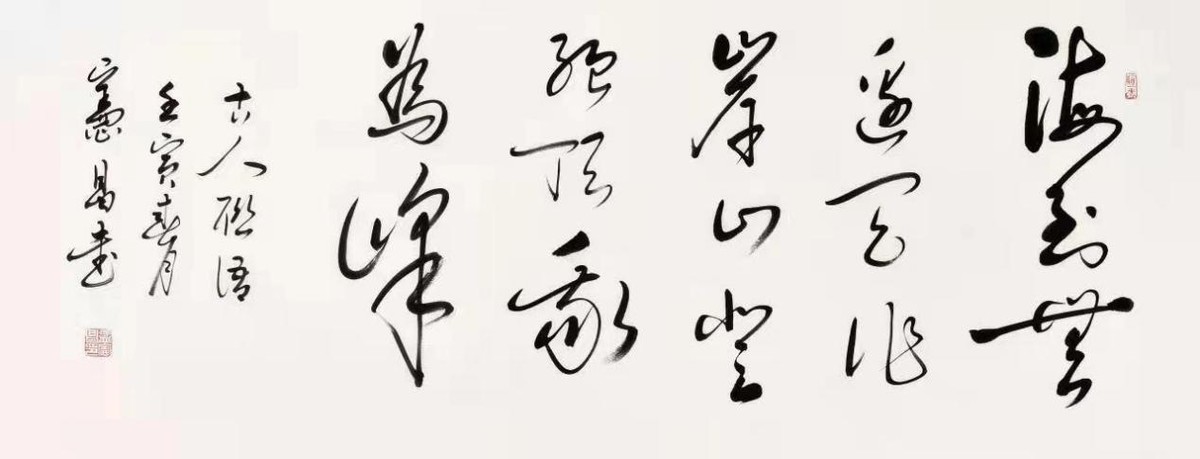 海到無
邊天作
岸山登
絕頂我
為峰
古人聯語
壬寅春月
憲昌書